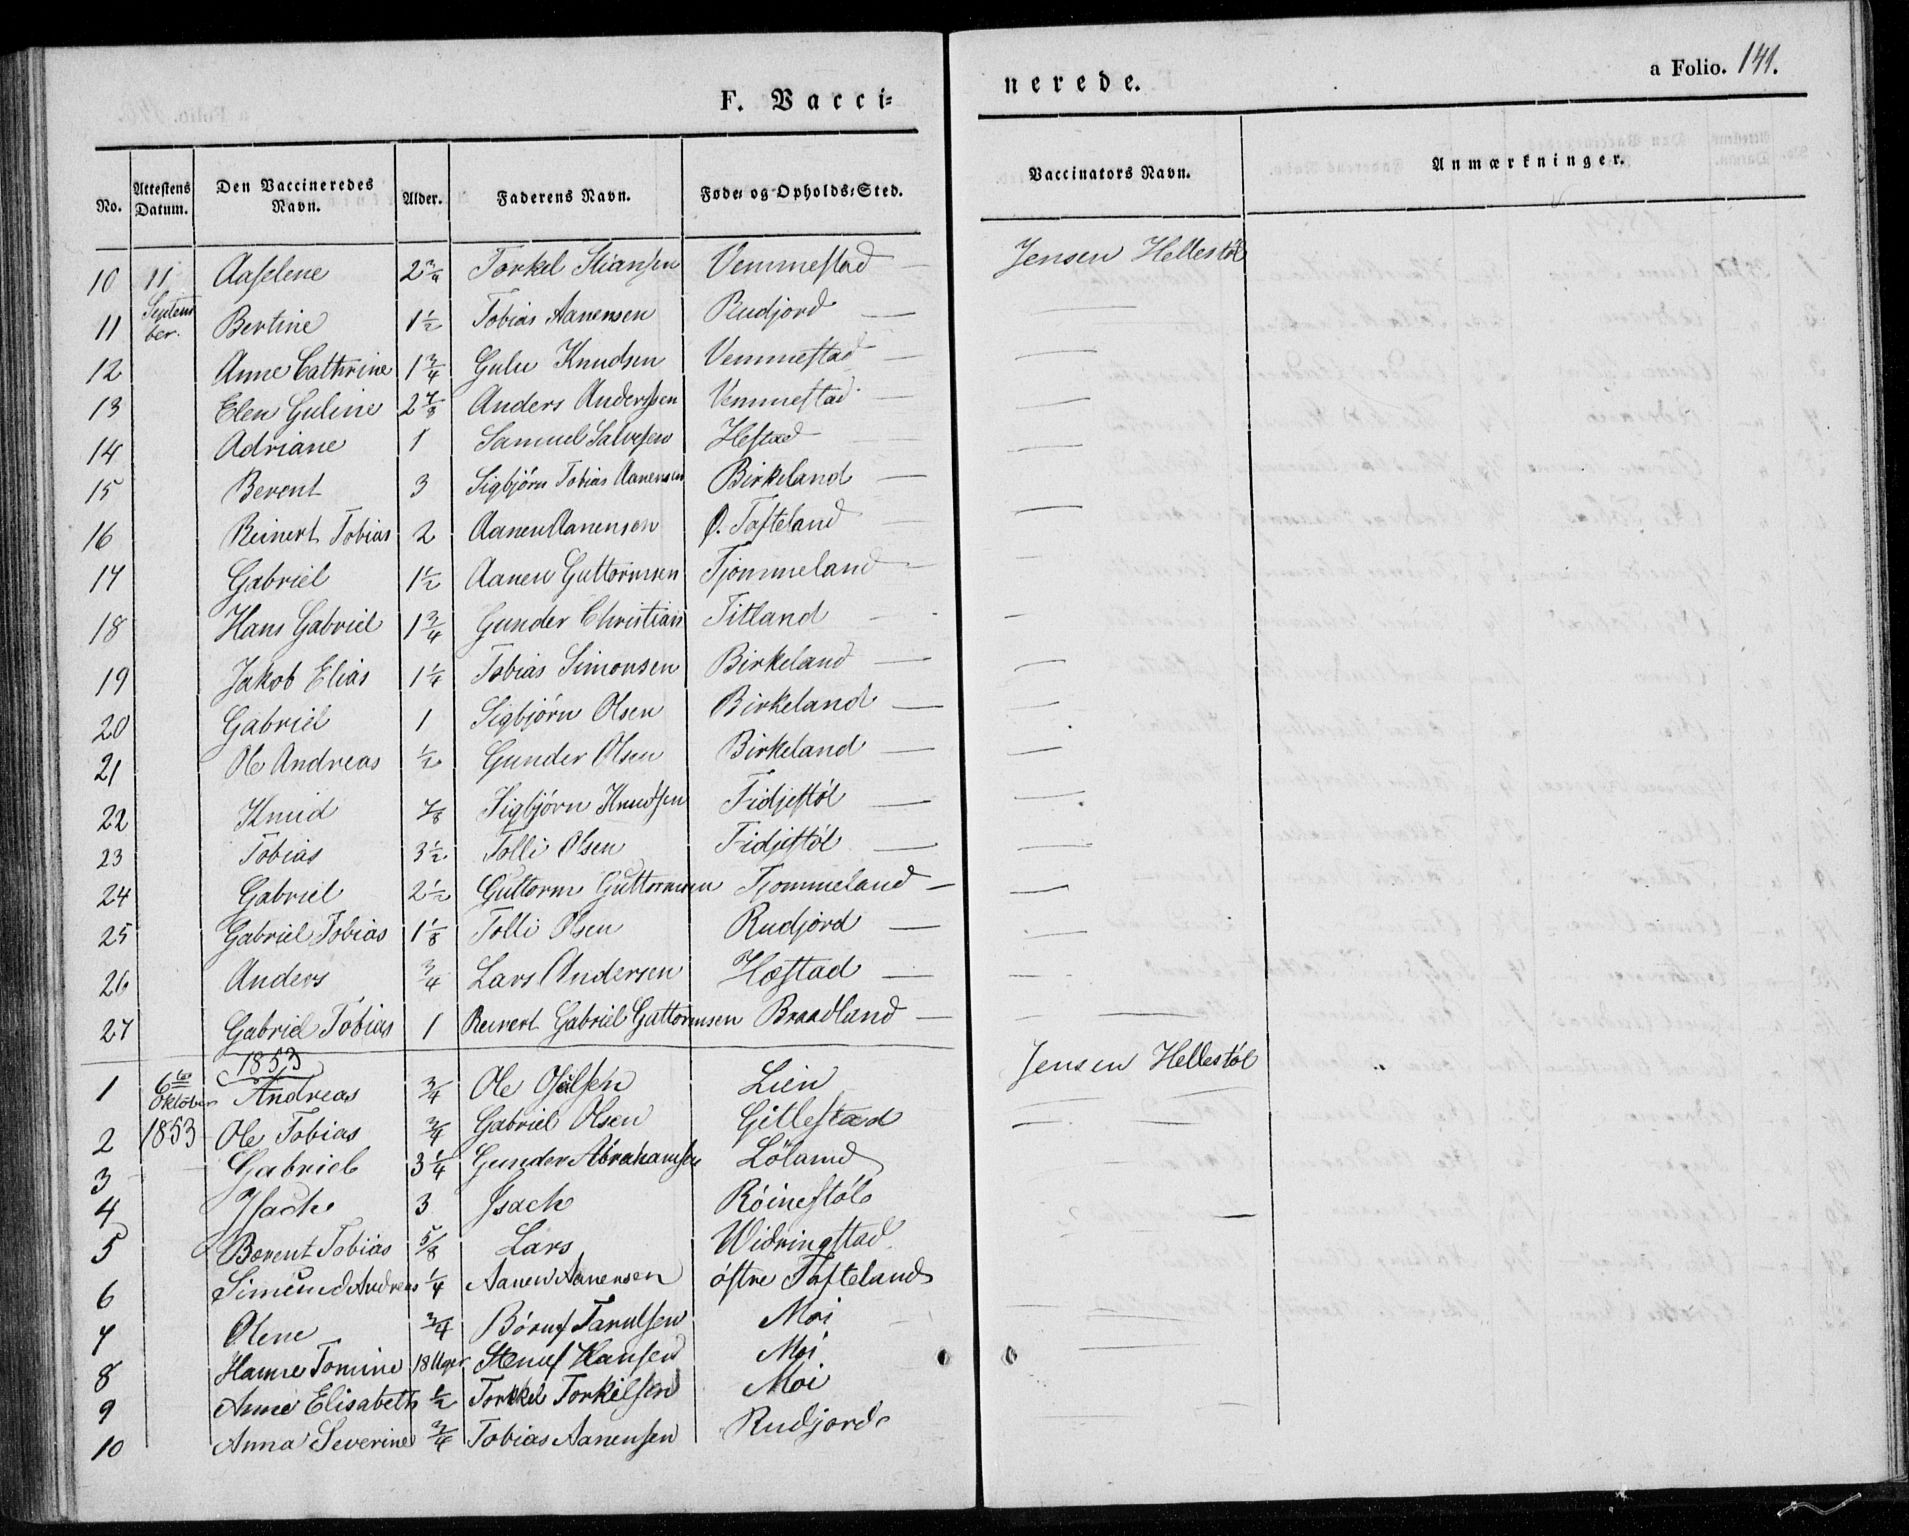 F. Vaccinerede. a Folio. 141.
No. Attestens Datum. Den Vaccineredes Navn. Alder. Faderens Navn. Føde- og Opholds-Sted. Vaccinators Navn. Anmærkninger.
10 11 Aaselene 2 3/4 Torkel Stiansen Vemmestad — Jensen Hellestöl
11 September. Bertine 1 1/2 Tobias Aanensen Rudjord —
12 Anne Cathrine 1 3/4 Gulu Knudsen Vemmestad —
13 Elen Guline 2 7/8 Anders Anderssen Vemmestad —
14 Adriane 1 Samuel Salvesen Hestad
15 Berent 3 Sigbjörn Tobias Aanensen Birkeland —
16 Reinert Tobias 2 Aanen Aanensen Ø. Tafteland —
17 Gabriel 1 1/2 Aanen Guttormsen Tjommeland —
18 Hans Gabriel 1 3/4 Gunder Christian Titland —
19 Jakob Elias 1 1/4 Tobias Simonsen Birkeland —
20 Gabriel 1 Sigbjörn Olsen Birkeland —
21 Ole Andreas 1/2 Gunder Olsen Birkeland —
22 Knud 7/8 Sigbjörn Knudsen Fidjestöl —
23 Tobias 3 1/2 Tolli Olsen Fidjestöl —
24 Gabriel 2 1/2 Guttorm Guttormsen Tjommeland —
25 Gabriel Tobias 1 1/8 Tolli Olsen Rudjord —
26 Anders 3/4 Lars Andersen Hæstad —
27 Gabriel Tobias 1 Reinert Gabriel Guttormsen Braadland —
1853
1 6te Oktober Andreas 3/4 Ole Lien Jensen Hellestöl
2 1853 Ole Tobias 3/4 Gabriel Olsen Gillestad
3 Gabriel 3 1/4 Gunder Abrahamsen Löland
4 Isach 3 Isach Röinestöl
5 Berent Tobias 5/8 Lars Widringstad
6 Simund Andreas 1/4 Aanen Aanensen östre Tafteland
7 Olene 3/4 Taralsen Moi
8 Hanne Tomine 18 Uger Hansen Moi
9 Anne Elisabeth 1/2 Torkel Torkelsen Moi
10 Anna Severine 3/4 Tobias Aanensen Rudjord